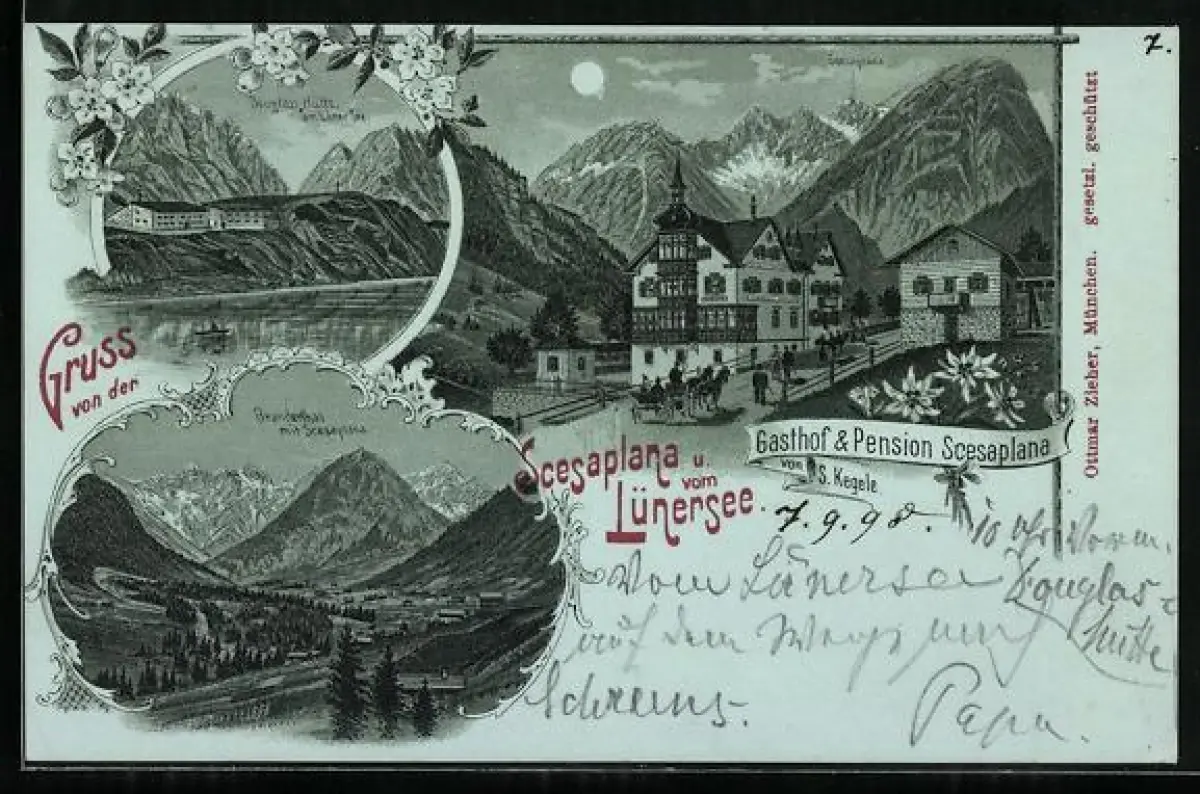 7.
Scesaplana
Douglas Hütte
am Lüner See
Gruss
von der
Brandnerthal
mit Scesaplana
Scesaplana u.
vom
Lünersee.
Gasthof & Pension Scesaplana
von S. Kegele
Ottmar Zieher, München. gesetzl. geschützt
7.9.98.
10 Uhr Vorm.
Vom Lünersee Douglas-
auf dem Wege nach Hütte
Schruns.
Papa.